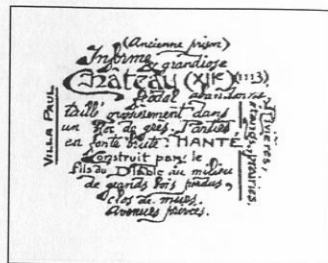 (Ancienne prison)
Informe & grandiose
Château (XIIe) (1113)
féodal abandonné
taillé grossièrement dans
un bloc de grès. Parties
en fonte brute: HANTÉ
Construit par le
fils du Diable au milieu
de grands bois perdus,
clos de murs.
Avenues percées.
VILLA PAUL
Rivières,
étangs, prairies.